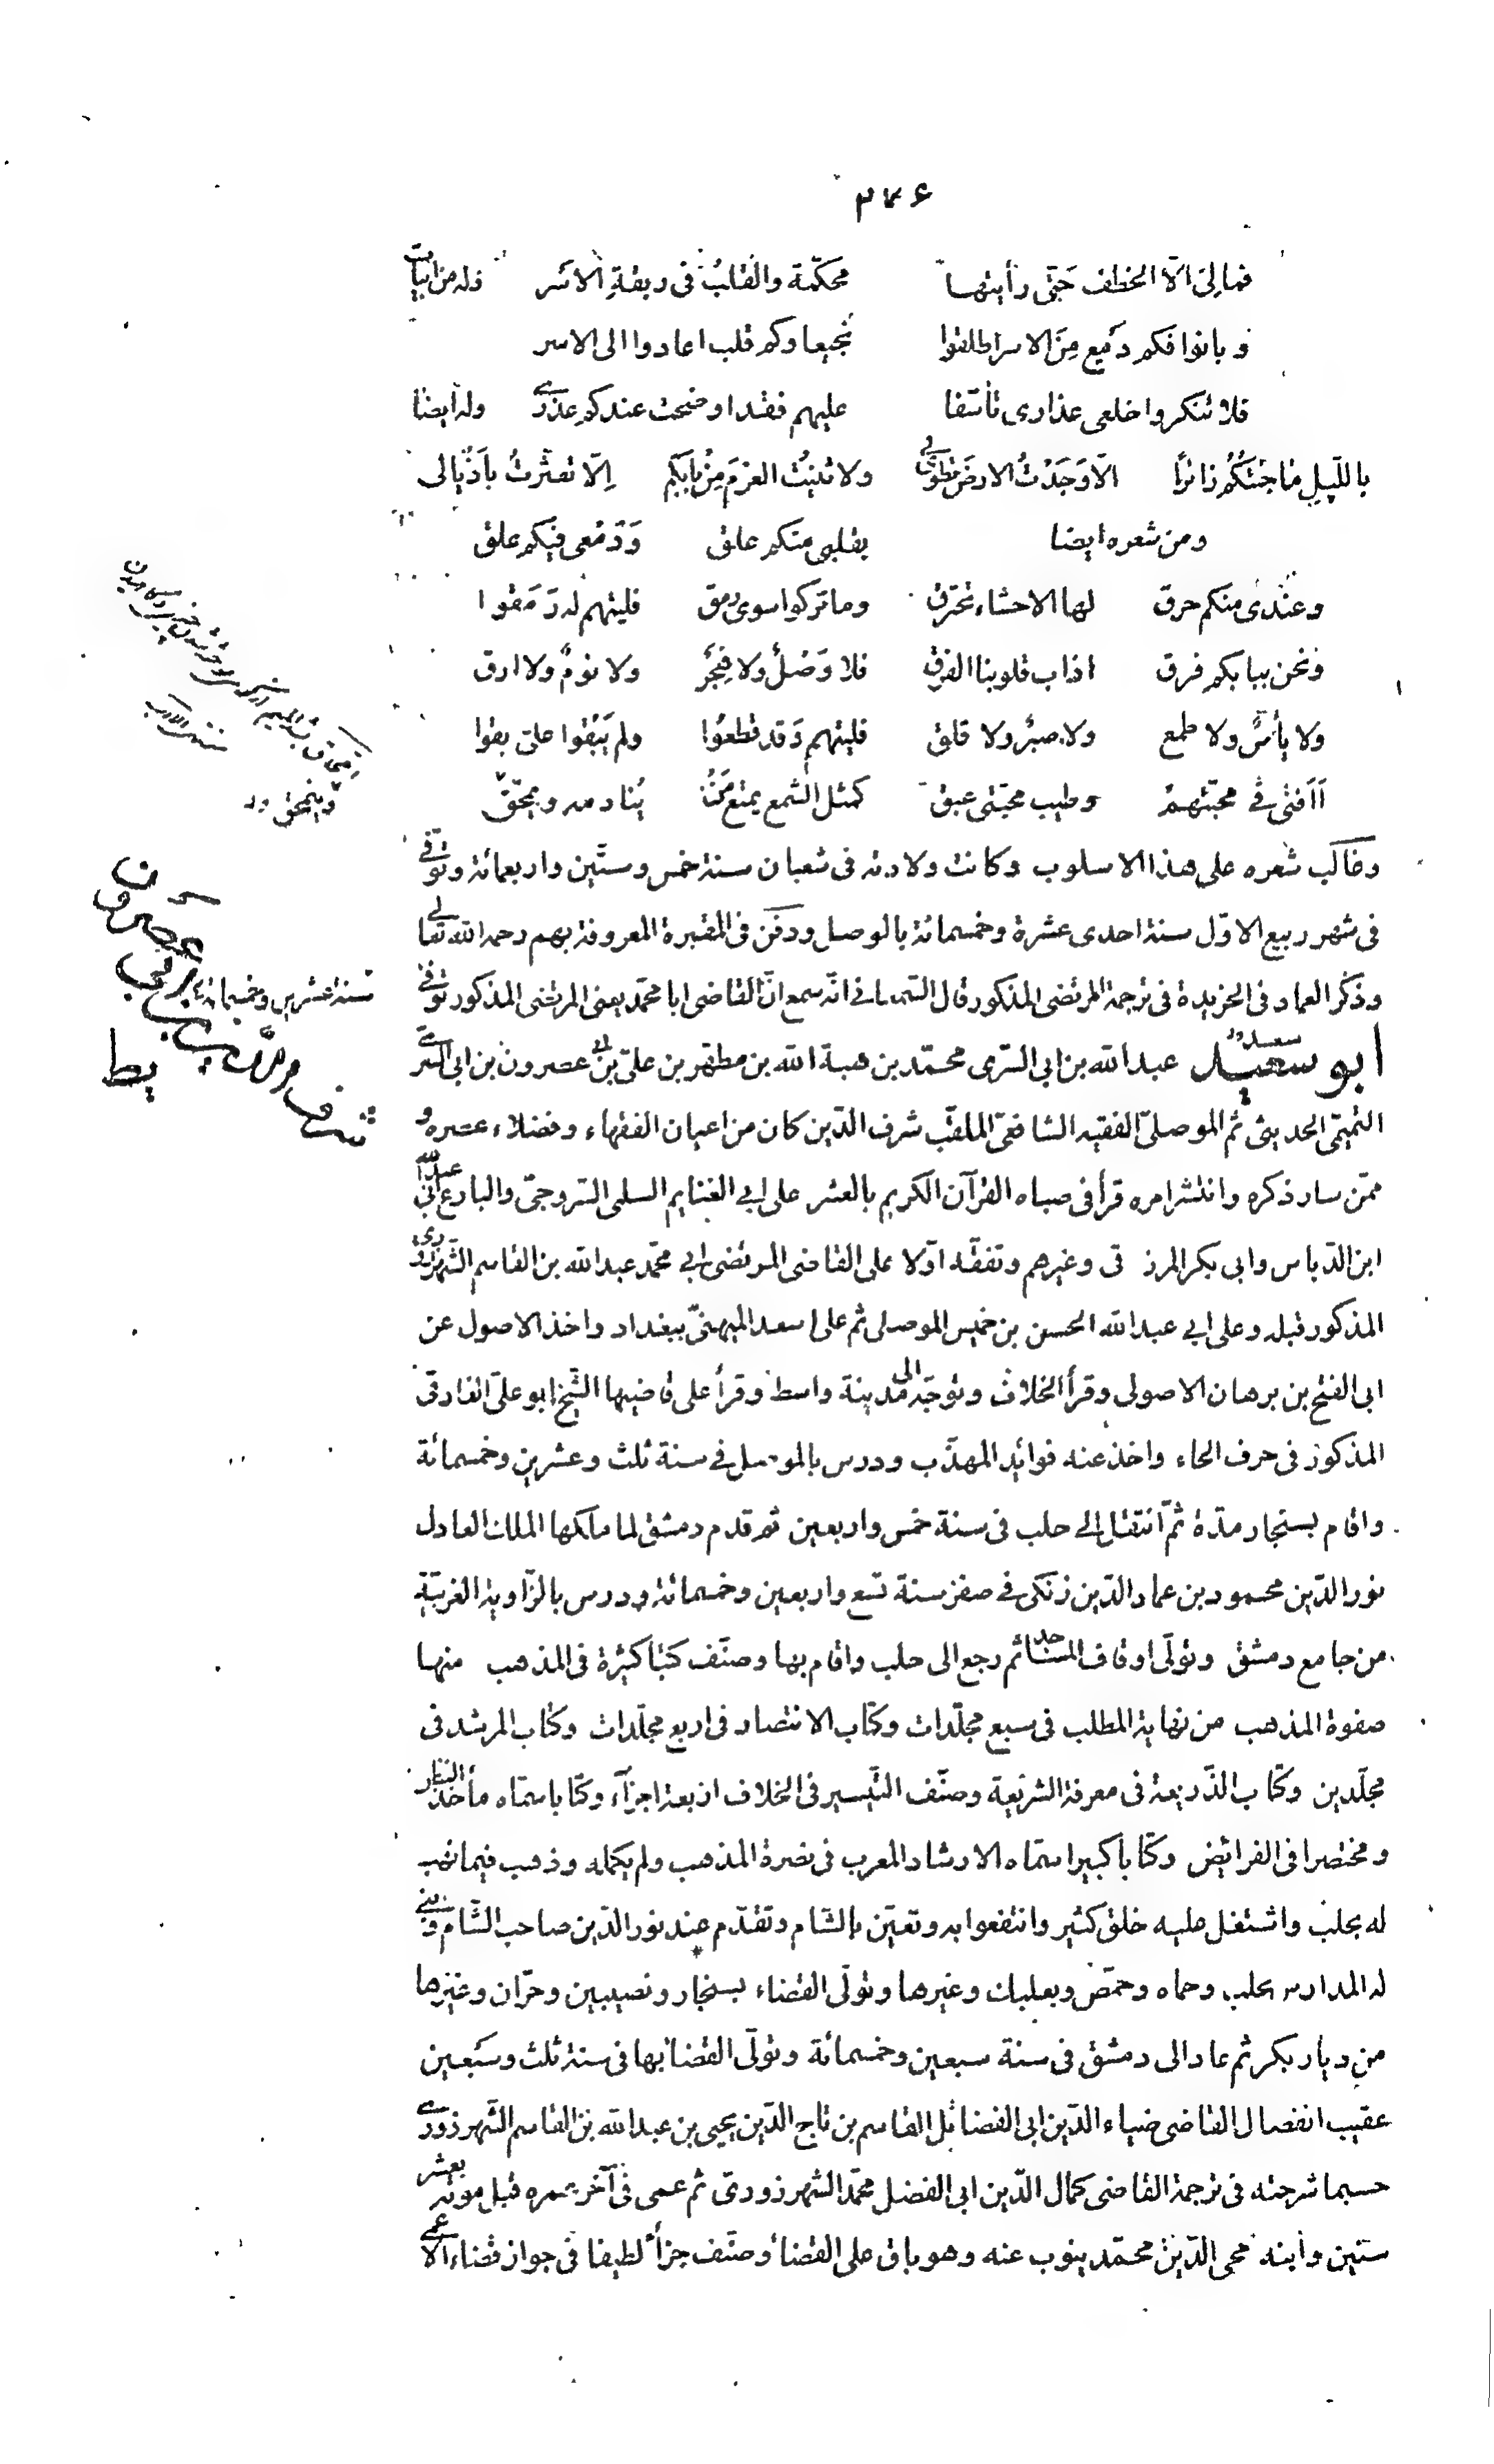 ٢٧۶
فمالي الا الخطف حتى رأيتها محكمة والقلب فى ربقة الاسر وله من ابيات
وبانوا فكم دمع من الاسر اطلقوا نجيعا وكم قلب اعادوا الى الاسر
فلا تنكروا خلعى عذارى تأسفا عليهم فقد اوضحت عندكم عذرى وله ايضا
بالليل ما جئتكم زائرا الا وجدت الارض تطوى لى ولا ثنيت العزم من بابكم الا تعثرت باذيالى
ومن شعره ايضا بقلبى منكم علق ودمعى فيكم علق
وعندى منكم حرق لها الاحشاء تحترق وما تركوا سوى رمق فليتهم له رمقوا
ونحن ببابكم فرق اذاب قلوبنا الفرق فلا وصل ولا هجر ولا نوم ولا ارق
ولا يأس ولا طمع ولا صبر ولا قلق فليتهم وقد قطعوا ولم يبقوا على بقوا
أأفنى فى محبتهم وطيب محبتى عبق كمثل الشمع يمتع من ينادمه ويمحق
وغالب شعره على هذا الاسلوب وكانت ولادته فى شعبان سنة خمس وستين واربعمائة وتوفى
فى شهر ربيع الاول سنة احدى عشرة وخمسمائة بالموصل ودفن فى المقبرة المعروفة بهم رحمه الله تعالى
وذكر العماد فى الخريدة فى ترجمة المرتضى المذكور قال السمعانى انه سمع ان القاضى ابا محمد يعنى المرتضى المذكور توفى
سنة عشرين وخمسمائة
ابو سعيد سعد عبدالله بن ابى السرى محمد بن هبة الله بن مطهر بن على بن ابى عصرون بن ابى السرى
التميمى الحديثى ثم الموصلى الفقيه الشافعى الملقب شرف الدين كان من اعيان الفقهاء وفضلاء عصره و
ممن سار ذكره وانتشر امره قرأ فى صباه القرآن الكريم بالعشر على ابى الغنايم السلمى السروجى والبارع ابى عبدالله
ابن الدباس وابى بكر المرزقى وغيرهم وتفقه اولا على القاضى المرتضى ابى محمد عبدالله بن القاسم الشهرزورى
المذكور قبله وعلى ابى عبدالله الحسن بن خميس الموصلى ثم على اسعد الميهنى ببغداد واخذ الاصول عن
ابى الفتح بن برهان الاصولى وقرأ الخلاف وتوجه الى مدينة واسط وقرأ على قاضيها الشيخ ابو على الفارقى
المذكور فى حرف الحاء واخذ عنه فوائد المهذب ودرس بالموصل فى سنة ثلث وعشرين وخمسمائة
واقام بسنجار مدة ثم انتقل الى حلب فى سنة خمس واربعين ثم قدم دمشق لما ملكها الملك العادل
نور الدين محمود بن عماد الدين زنكى فى صفر سنة تسع واربعين وخمسمائة ودرس بالزاوية الغربية
من جامع دمشق وتولى اوقاف المساجد ثم رجع الى حلب واقام بها وصنف كتبا كثيرة فى المذهب منها
صفوة المذهب من نهاية المطلب فى سبع مجلدات وكتاب الانتصار فى اربع مجلدات وكتاب المرشد فى
مجلدين وكتاب الذريعة فى معرفة الشريعة وصنف التيسير فى الخلاف اربعة اجزآء وكتابا سماه مأخذ النظر
ومختصرا فى الفرائض وكتابا كبيرا سماه الارشاد المعرب فى نصرة المذهب ولم يكمله وذهب فيما نهب
له بحلب واشتغل عليه خلق كثير وانتفعوا به وتعين بالشام وتقدم عند نور الدين صاحب الشام وبنى
له المدارس بحلب وحماه وحمص وبعلبك وغيرها وتولى القضاء بسنجار ونصيبين وحران وغيرها
من ديار بكر ثم عاد الى دمشق فى سنة سبعين وخمسمائة وتولى القضا بها فى سنة ثلث وسبعين
عقيب انفصال القاضى ضياء الدين ابى الفضائل القاسم بن تاج الدين يحيى بن عبدالله بن القاسم الشهرزورى
حسبما شرحته فى ترجمة القاضى كمال الدين ابى الفضل محمد الشهرزورى ثم عمى فى آخر عمره قبل موته بعشر
سنين وابنه محى الدين محمد ينوب عنه وهو باق على القضا وصنف جزأ لطيفا فى جواز قضاء الاعمى